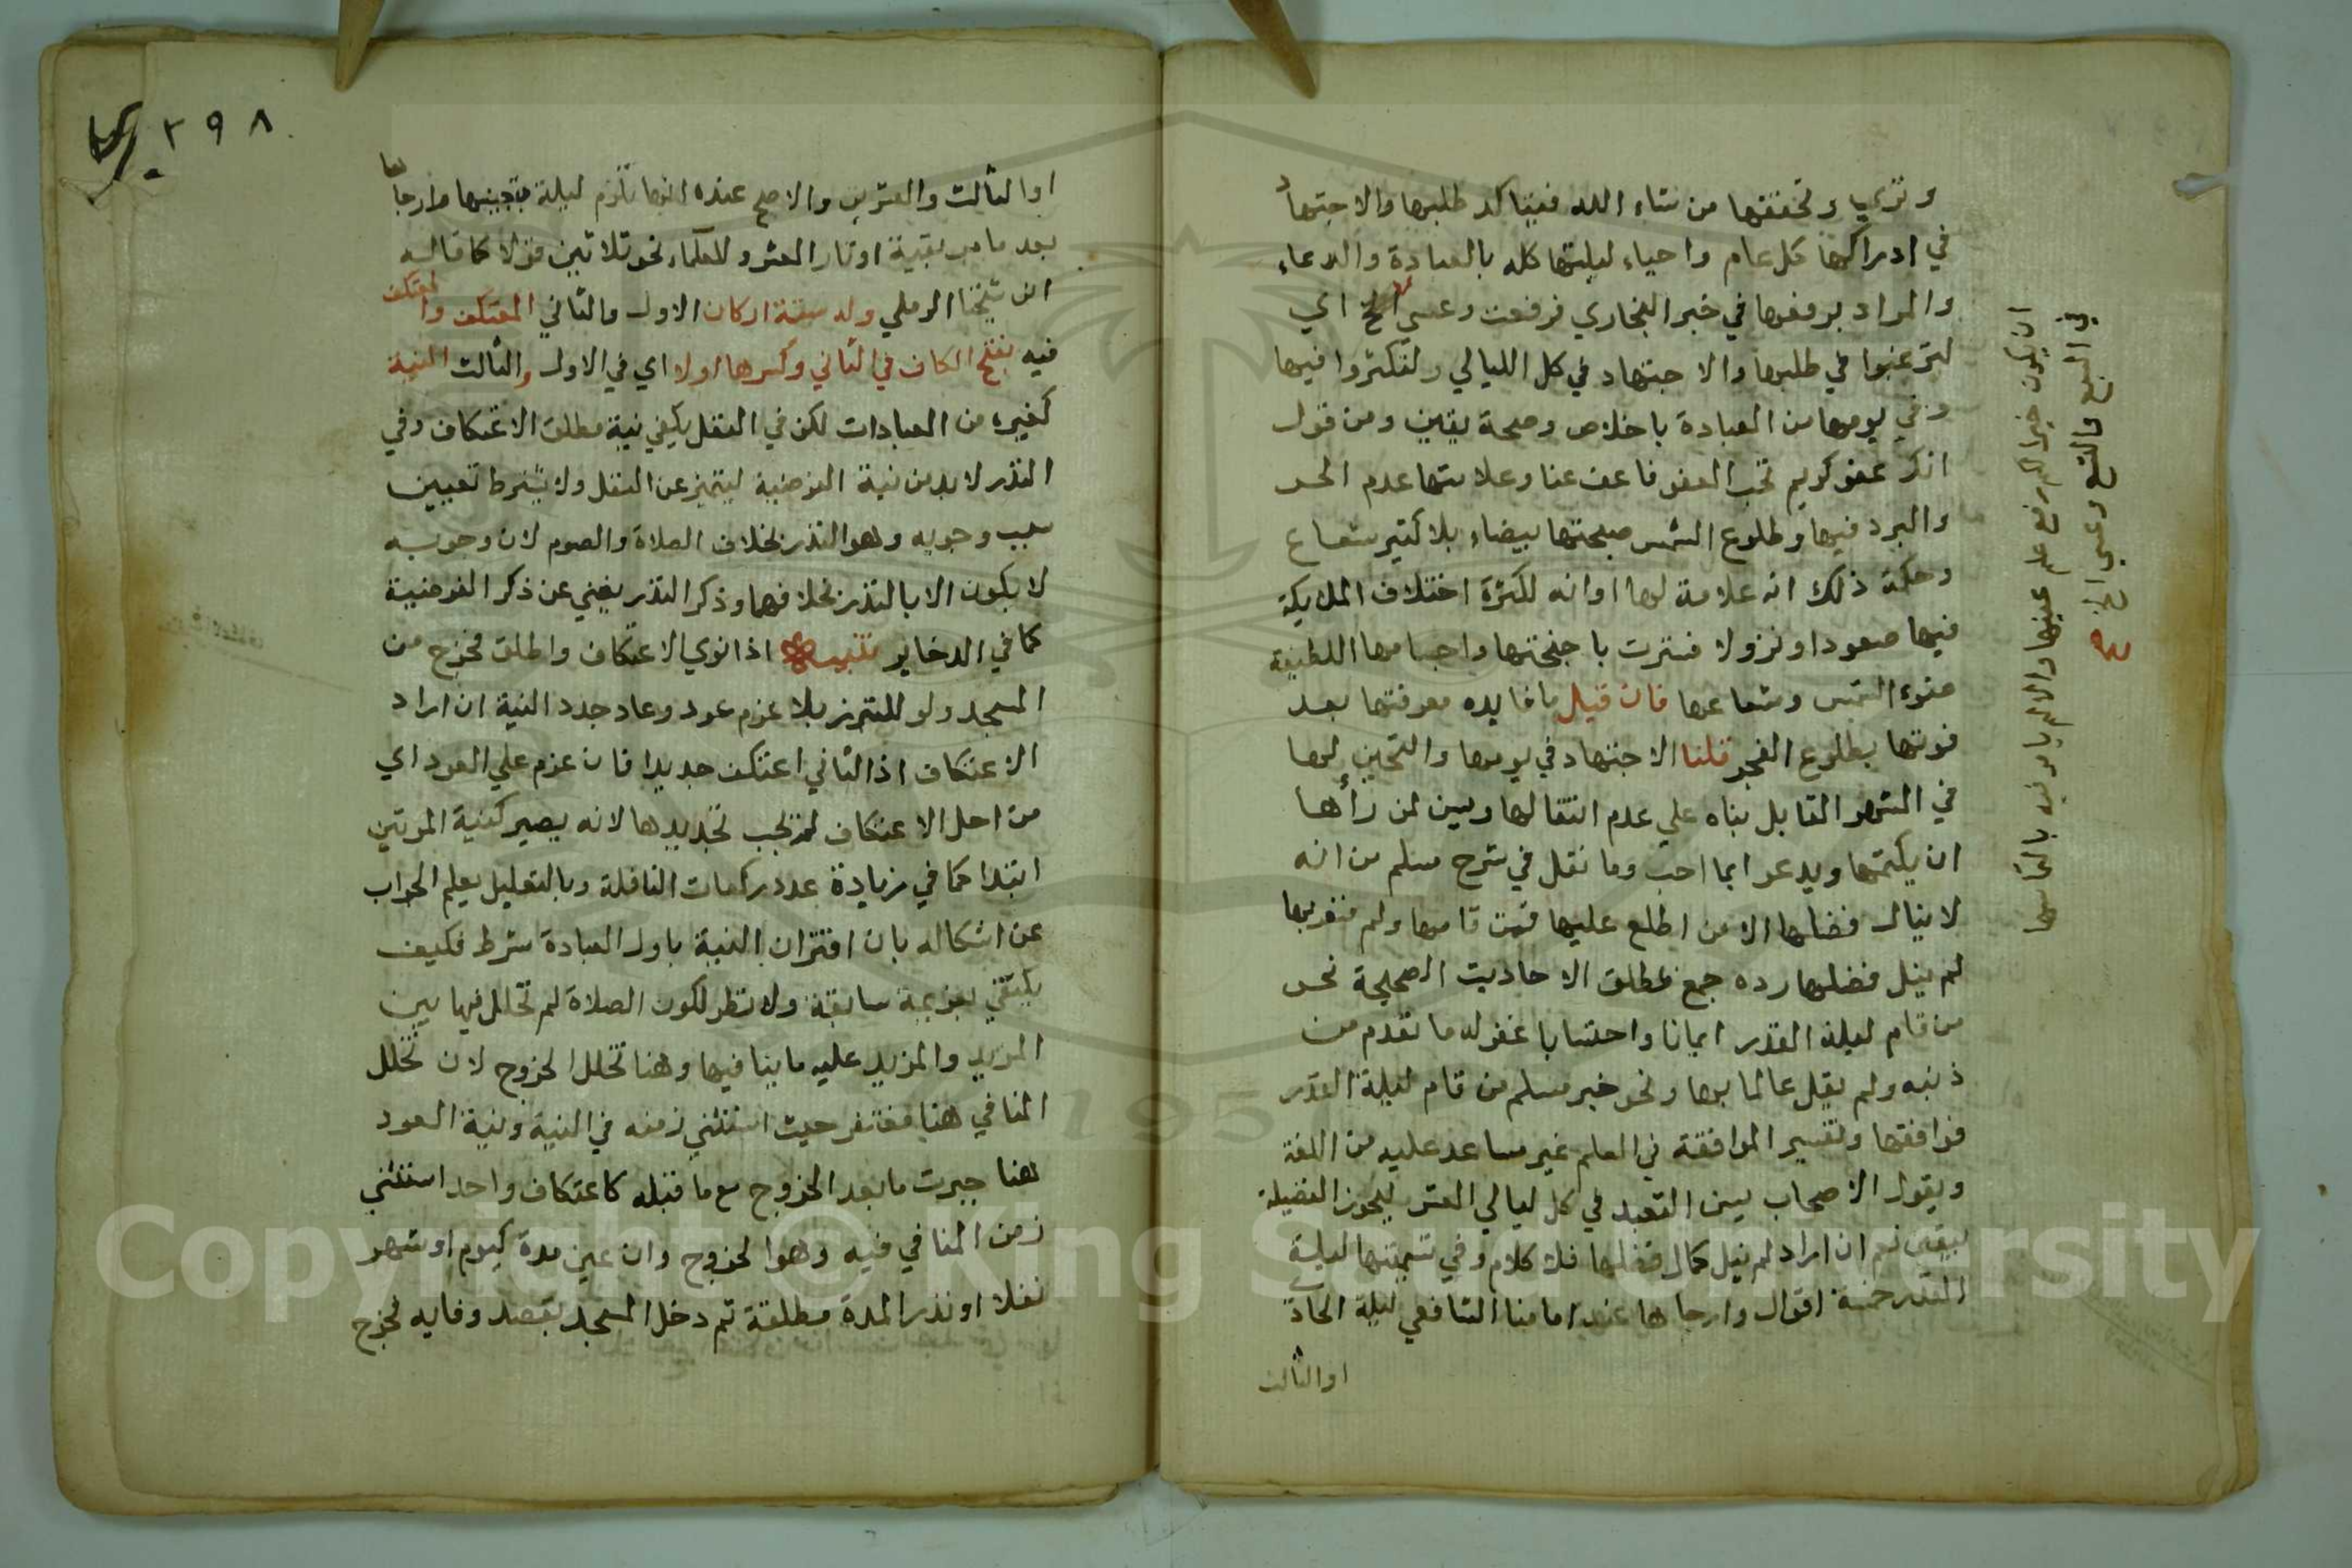 وتري وتحققها من شاء الله فيتاكد طلبها والاجتهاد
في ادراكها كل عام واحياء ليلتها كله بالعبادة والدعاء
والمراد برفعها في خبر البخاري فرفعت وعسى الخ اي
لترغبوا في طلبها والاجتهاد في كل الليالي ولتكثروا فيها
وفي يومها من العبادة باخلاص وصحة يقين ومن قول
انك عفو كريم تحب العفو فاعف عنا وعلامتها عدم الحر
والبرد فيها وطلوع الشمس صبحتها بيضاء بلا كثير شعاع
وحكمة ذلك انه علامة لها او انه لكثرة اختلاف الملايكة
فيها صعودا ونزولا فسترت باجنحتها واجسامها اللطيفة
ضوء الشمس وشعاعها فان قيل ما فايده معرفتها بعد
فوتها بطلوع الفجر قلنا الاجتهاد في يومها والتحين لها
في الشهر القابل بناه علي عدم انتقالها ويسن لمن رأها
ان يكتمها ويدعو بما احب وما نقل في شرح مسلم من انه
لا ينال فضلها الا من اطلع عليها فمن قامها ولم يشعر بها
لم ينل فضلها رده جمع بمطلق الاحاديث الصحيحة نحو
من قام ليلة القدر ايمانا واحتسابا غفر له ما تقدم من
ذنبه ولم يقل عالما بها ونحو خبر مسلم من قام ليلة القدر
فوافقها وتفسير الموافقة في العلم غير مساعد عليه من اللغة
ويقول الاصحاب يسن التعبد في كل ليالي العشر ليحوز الفضيلة
بيقين نعم ان اراد لم ينل كمال فضلها فلا كلام وفي تسميتها ليلة
القدر خمسة اقوال وارجاها عند امامنا الشافعي ليلة الحاد
او الثالث
ان يكون خيرا اي رفع علم عينها والا لم يامر فيه بالتماسها
في السبع والتسع وعسى الخ
او الثالث والعشرين والاصح عنده انها تلزم ليلة بعينها وارجاها
بعد ما مر بقية اوتار العشر وللعلماء نحو ثلاثين قولا كما قاله
شيخنا الرملي وله ستة اركان الاول والثاني المعتكف والمعتكف
فيه بفتح الكاف في الثاني وكسرها اولا اي في الاول والثالث النية
كغيره من العبادات لكن في النفل يكفي نية مطلق الاعتكاف وفي
النذر لا بد من نية الفرضية ليتميز عن النفل ولا يشترط تعيين
سبب وجوبه وهو النذر بخلاف الصلاة والصوم لان وجوبه
لا يكون الا بالنذر بخلافهما وذكر النذر يغني عن ذكر الفرضية
كما في الدخاير تنبيه اذا نوي الاعتكاف واطلق فخرج من
المسجد ولو للتبرز بلا عزم عود وعاد جدد النية ان اراد
الاعتكاف اذ الثاني اعتكف جديد فان عزم علي العود اي
من اجل الاعتكاف لم يجب تجديدها لانه يصير كنية المرتين
ابتدا كما في زيادة عدد ركعات النافلة وبالتعليل يعلم الجواب
عن اشكاله بان اقتران النية باول العبادة شرط فكيف
يكتفي بعزيمة سابقة ولا نظر لكون الصلاة لم تخلل فيها بين
المزيد والمزيد عليه ما ينافيها وهنا تخلل الخروج لان تخلل
المنافي هنا مغتفر حيث استثني زمنه في النية ونية العود
هنا جبرت ما بعد الخروج مع ما قبله كاعتكاف واحد استثني
زمن المنافي فيه وهو الخروج وان عين مدة كيوم او شهر
نفلا او نذر المدة مطلقة ثم دخل المسجد بقصد وفايه فخرج
٣٩٨
Copyright © King Saud University
195